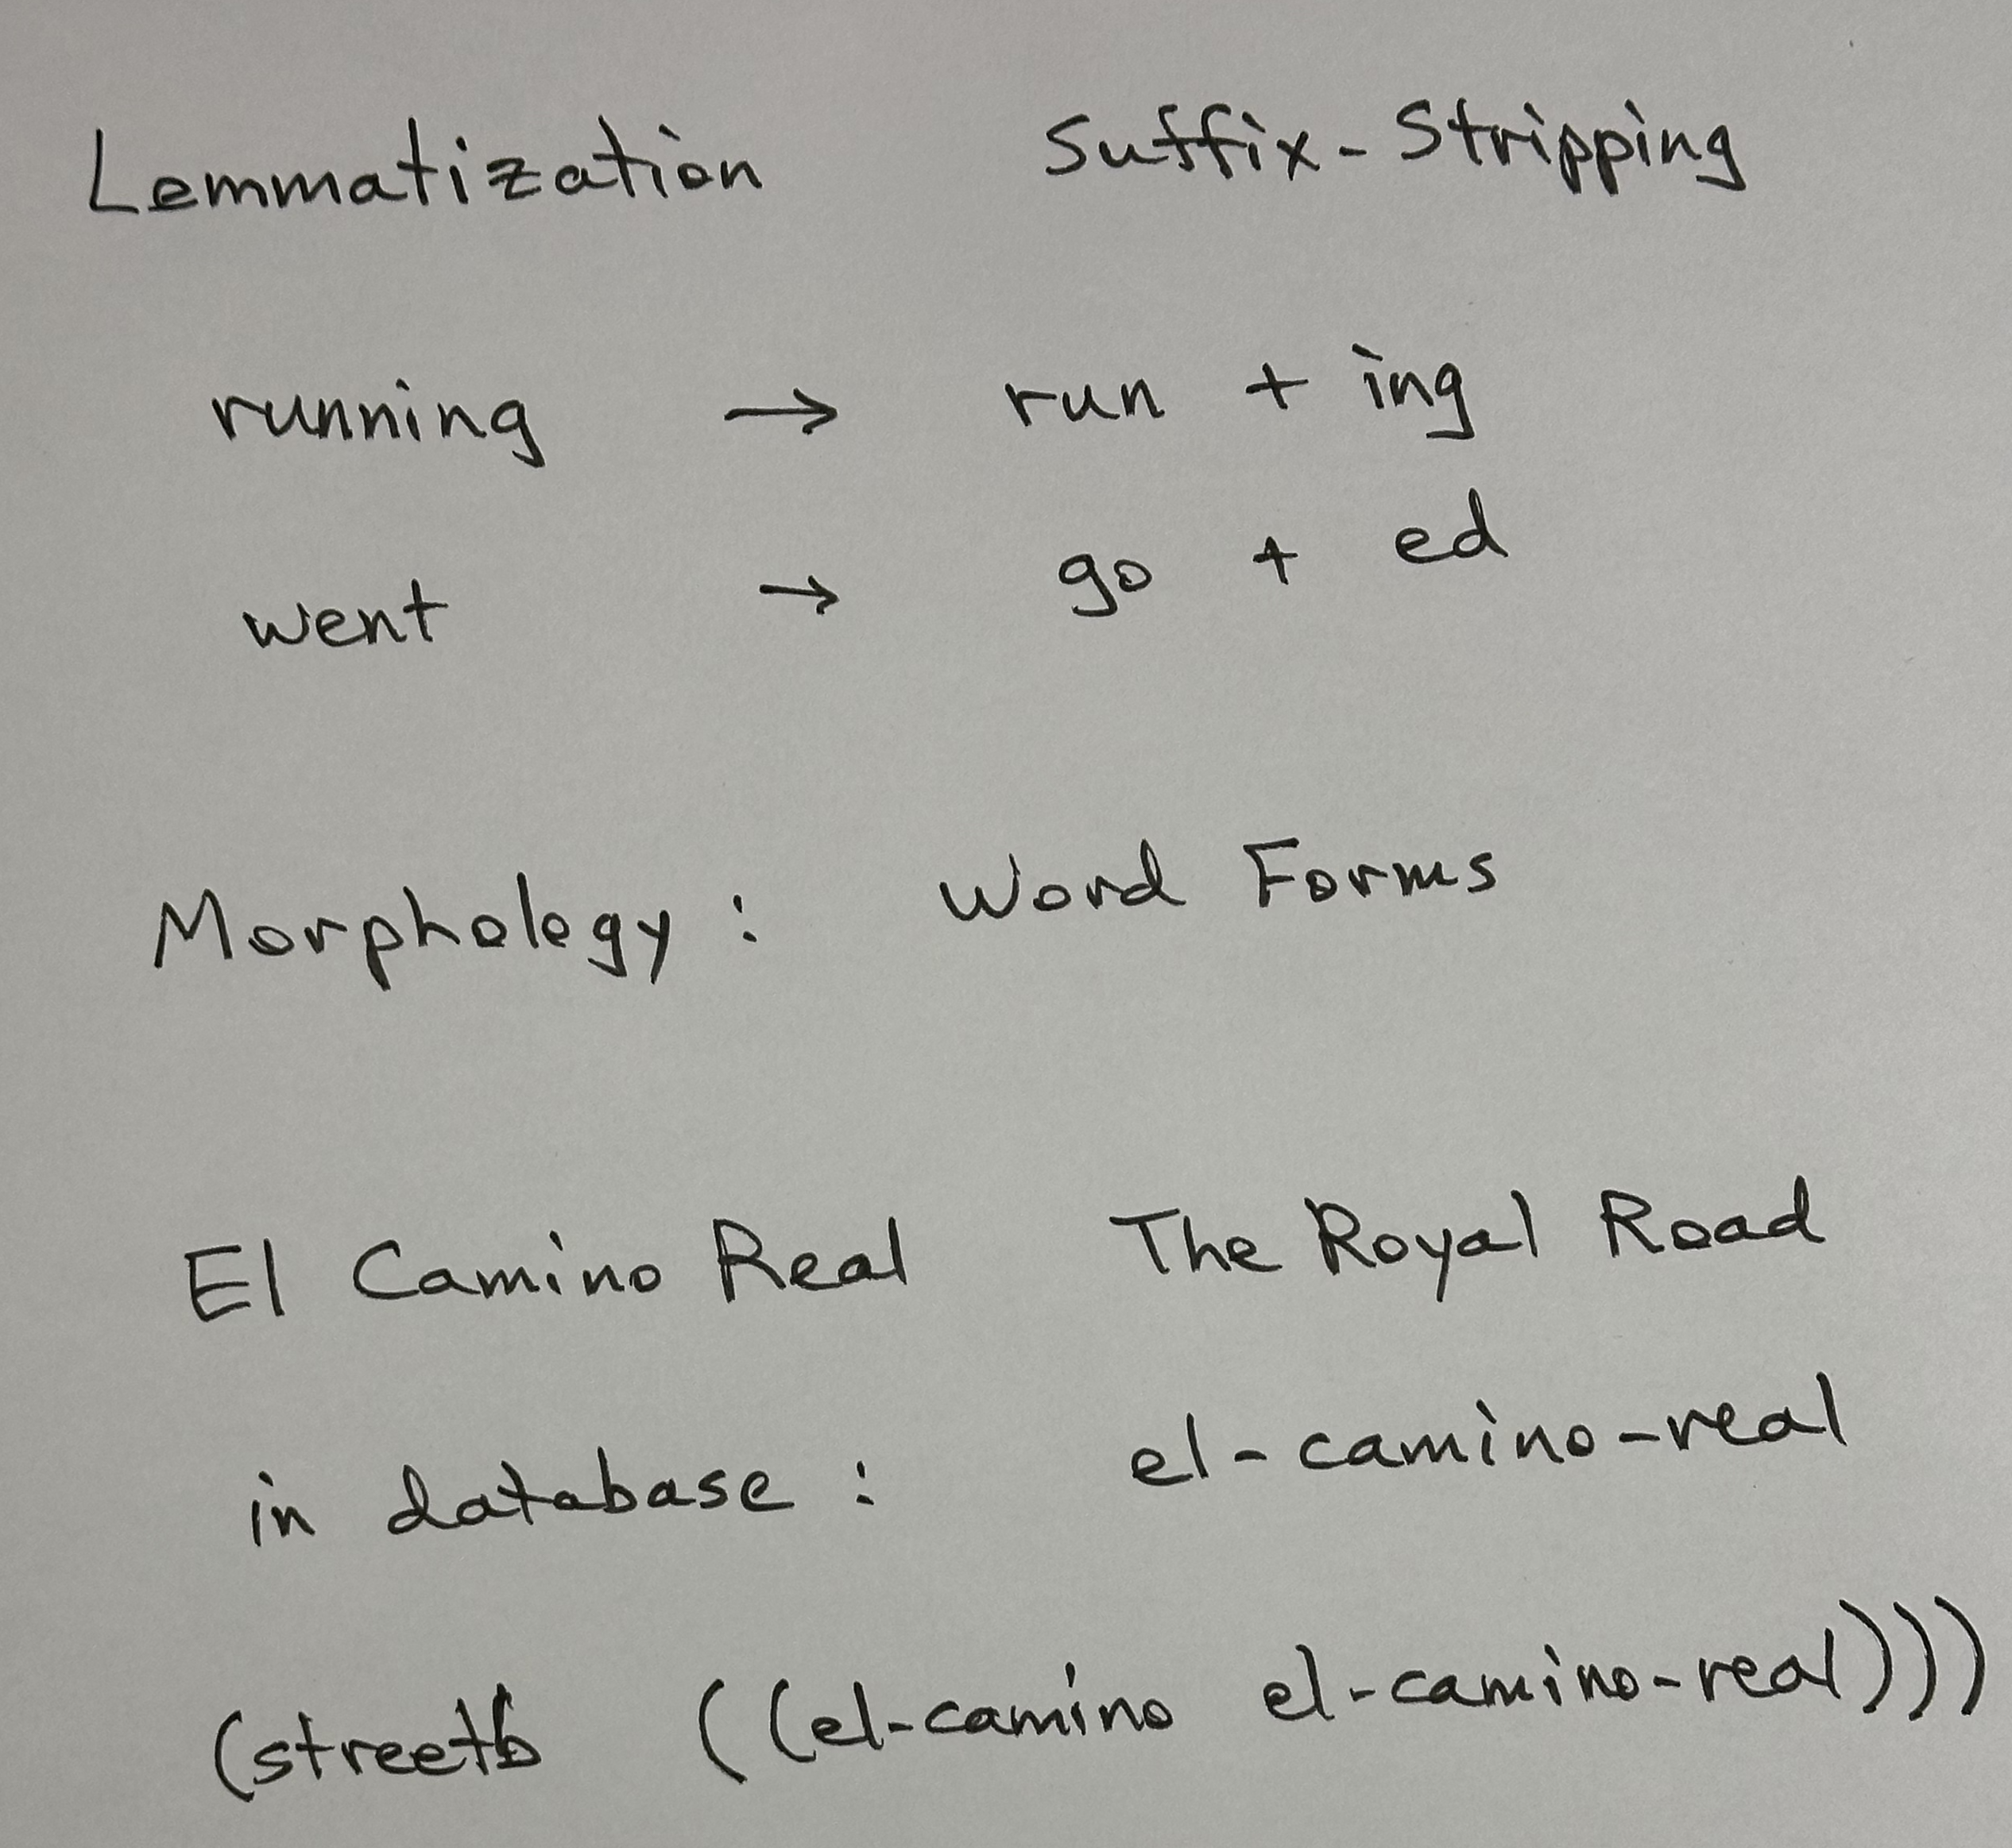 Lemmatization Suffix-Stripping
running → run + ing
went → go + ed
Morphology : Word Forms
El Camino Real The Royal Road
in database : el-camino-real
((el-camino el-camino-real)))